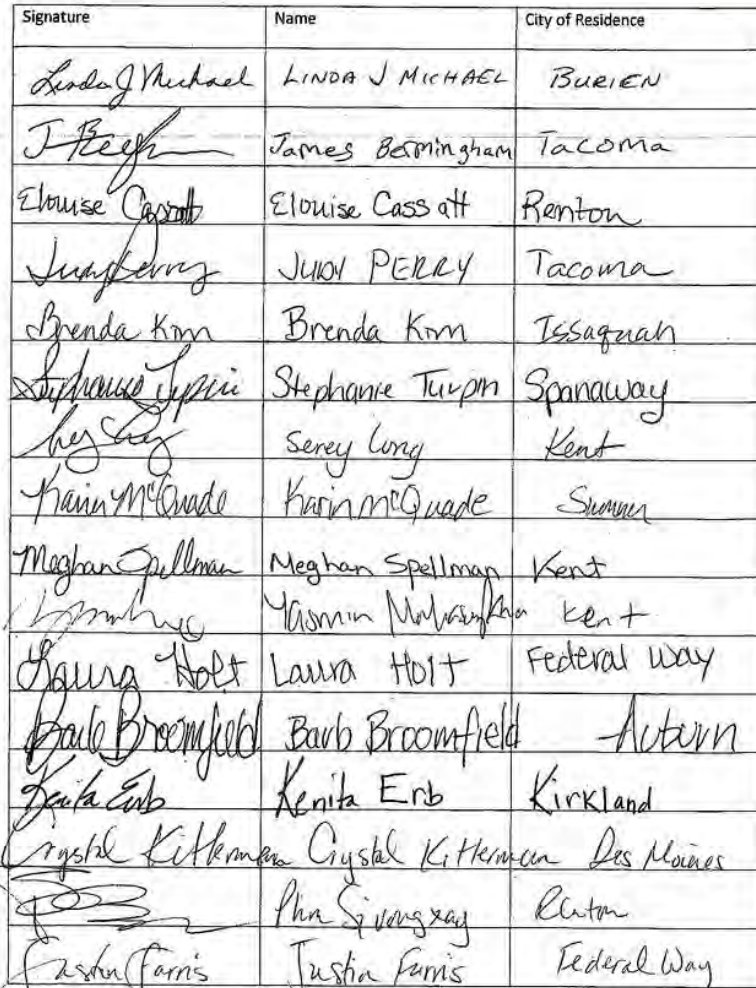 Signature Name City of Residence
Linda J Michael LINDA J MICHAEL BURIEN
J James Bermingham Tacoma
Elouise Cassatt Elouise Cassatt Renton
Judy Perry JUDY PERRY Tacoma
Brenda Kim Brenda Kim Issaquah
Stephanie Turpin Stephanie Turpin Spanaway
Serey Long Kent
Karin McQuade Karin McQuade Sumner
Meghan Spellman Meghan Spellman Kent
Yasmin Kent
Laura Holt Laura Holt Federal Way
Barb Broomfield Barb Broomfield Auburn
Kenita Erb Kenita Erb Kirkland
Crystal Kitterman Crystal Kitterman Des Moines
Sivongxay Renton
Justin Farris Justin Farris Federal Way